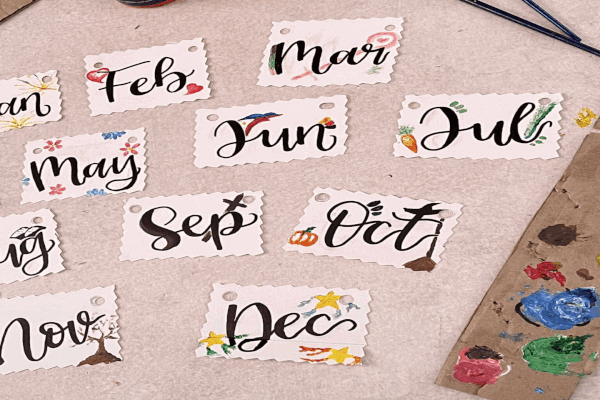 an Feb Mar
May Jun Jul
ug Sep Oct
Nov Dec